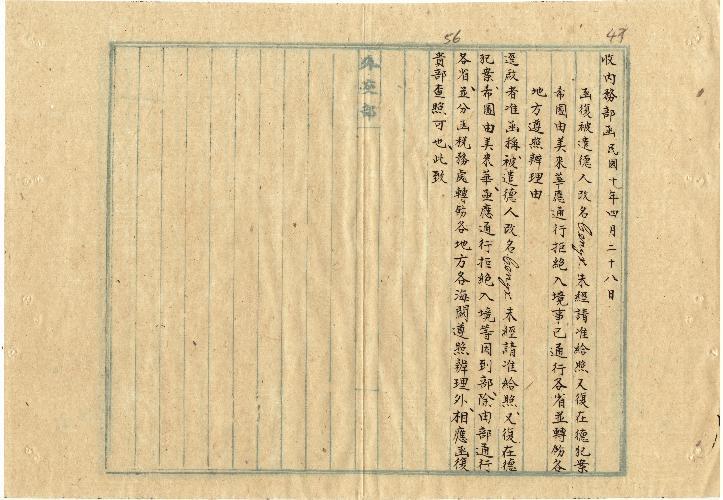 56
47
收內務部函民國十年四月二十八日
函復被遣德人改名Conyx未經請准給照又復在德犯案
希圖由美來華應通行拒絕入境事已通行各省並轉飭各
地方遵照辦理由
逕啟者准函稱被遣德人改名Conyx未經請准給照又復在德
犯案希圖由美來華亟應通行拒絕入境等因到部除由部通行
各省並分函稅務處轉飭各地方各海關遵照辦理外相應函復
貴部查照可也此致
外交部